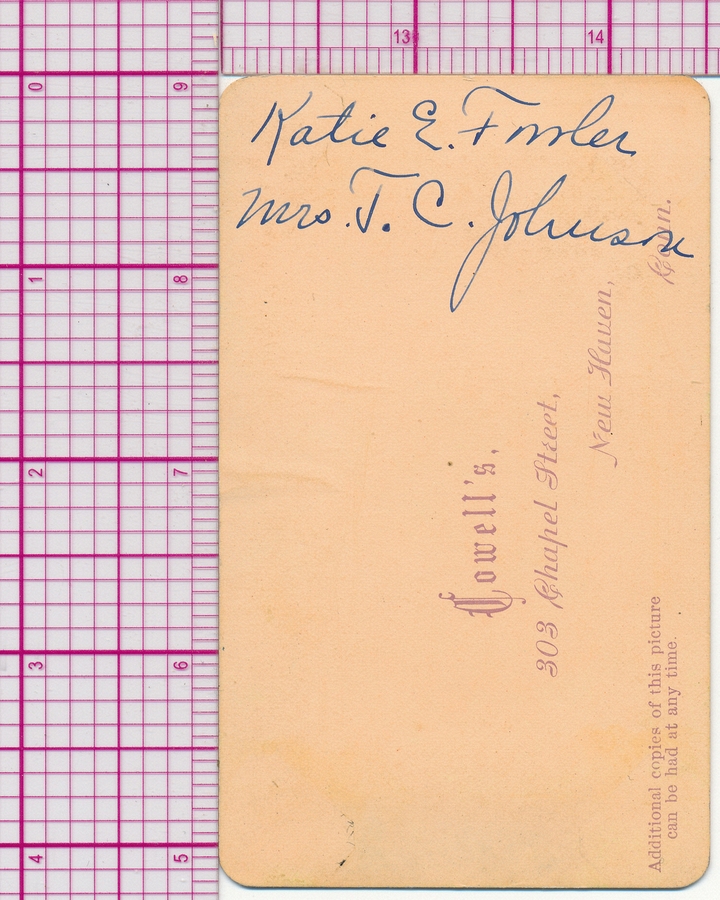 13 14
0 9
1 8
2 7
3 6
4 5
Katie E. Fowler
Mrs. T. C. Johnson
Cowell's,
303 Chapel Street,
New Haven,
Conn.
Additional copies of this picture
can be had at any time.